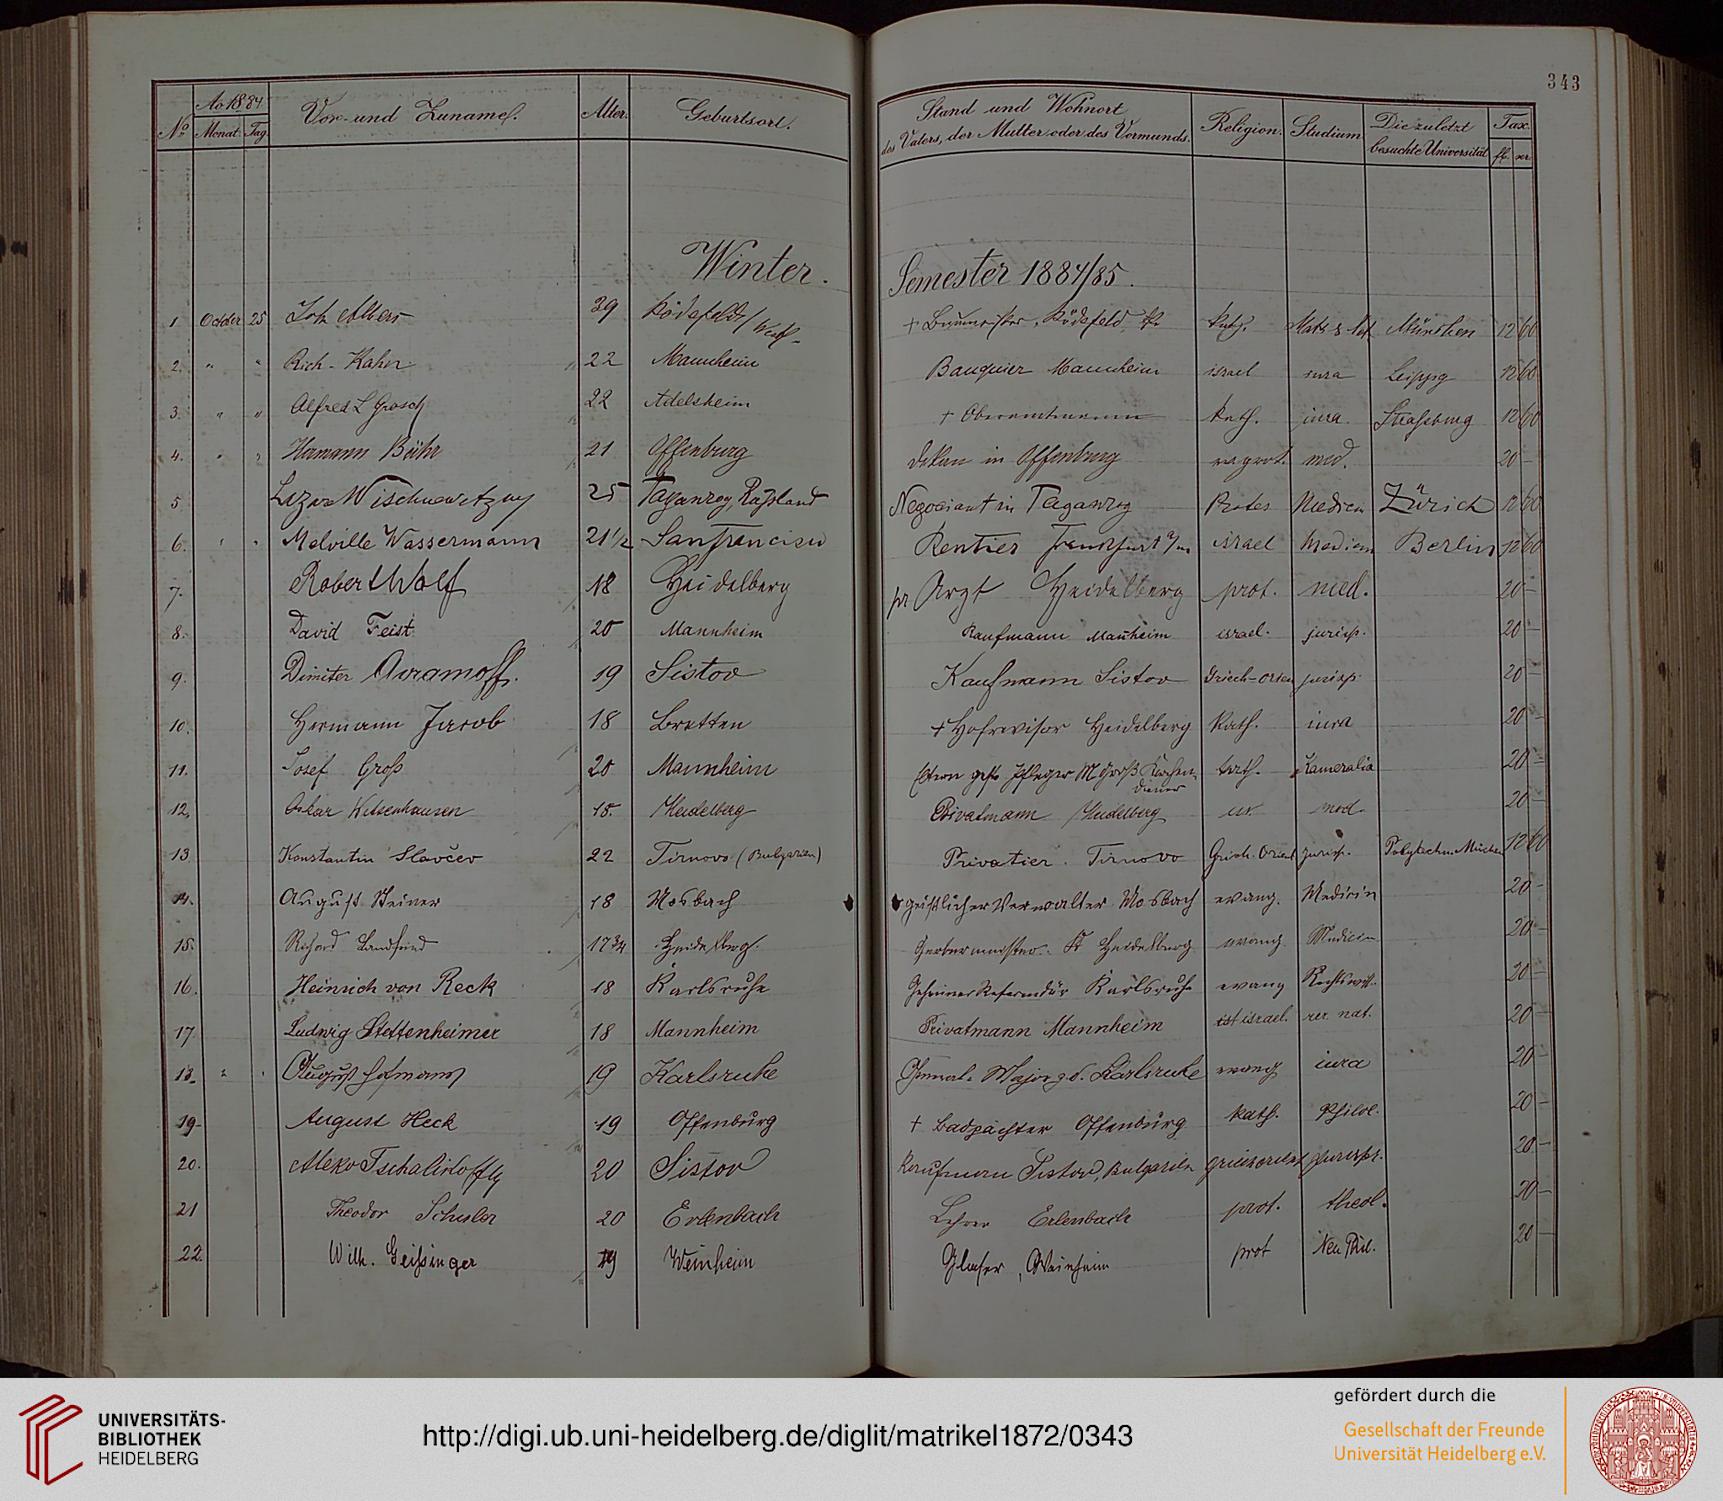 343
No Ao 1884 Monat. Tag. Vor- und Zuname. Alter. Geburtsort. Stand und Wohnort des Vaters, der Mutter oder des Vormunds. Religion. Studium Die zuletzt besuchte Universität Tax. fl. xr.
Winter. Semester 1884/85.
1 October 25 Joh Albers 29 Ködefeld / + Baumeister, Ködefeld kath. Math & Nat München 12 60
2. " " Rich. Kahn 22 Mannheim Banquier Mannheim israel iura Leipzig 12 60
3. " " Alfred L Grosch 22 Adelsheim + Oberamtmann kath. iura Strassburg 12 60
4. " " Hermann Bähr 21 Offenburg Dekan in Offenburg med. 20 —
5 Lazar Wischnewetzky 25 Taganrog, Rußland Negociant in Taganrog Protes Medicin Zürich 12 60
6. " " Melville Wassermann 21 1/2 San Francisco Rentier Frankfurt a/m israel Medicin Berlin 12 60
7. Robert Wolf 18 Heidelberg pr Arzt Heidelberg prot. med. 20 —
8. David Feist 20 Mannheim Kaufmann Manheim israel. jurisp. 20 —
9. Dimiter Avramoff. 19 Sistov Kaufmann Sistov Griech-orien jurisp. 20 —
10. Hermann Jacob 18 Bretten + Hofrevisor Heidelberg Kath. iura 20 —
11. Josef Groß 20 Mannheim Pfleger M Groß Kirchendiener kath. Kameralia 20 —
12. Oskar Witzenhausen 18. Heidelberg Privatmann Heidelberg isr. med. 20 —
13 Konstantin Slavčev 22 Tirnovo (Bulgarien) Privatier. Tirnovo Griech. Orient jurisp. Polytechn. München 12 60
14. August Steiner 18 Mosbach geistlicher Verwalter Mosbach evang. Medicin 20 —
15. Richard Landfried 17 3/4 Heidelberg. Gerbermeister Heidelberg evang. Medicin 20 —
16. Heinrich von Reck 18 Karlsruhe Geheimer Referendär Karlsruhe evang Rechtswiss. 20 —
17. Ludwig Stettenheimer 18 Mannheim Privatmann Mannheim israel. rer. nat. 20 —
18. " " August Hofmann 19 Karlsruhe General-Major z. D. Karlsruhe evang iura 20 —
19. August Heck 19 Offenburg + Badpächter Offenburg kath. Philol. 20 —
20. Aleko Tschalikoffly 20 Sistov Kaufmann Sistov, Bulgarien griechorient Jurispr. 20 —
21 Theodor Schuler 20 Erlenbach Lehrer Erlenbach prot. theol. 20 —
22. Wilh. Geißinger 19 Weinheim Glaser, Weinheim prot Neu Phil. 20 —
UNIVERSITÄTS-
BIBLIOTHEK
HEIDELBERG
http://digi.ub.uni-heidelberg.de/diglit/matrikel1872/0343
gefördert durch die
Gesellschaft der Freunde
Universität Heidelberg e.V.